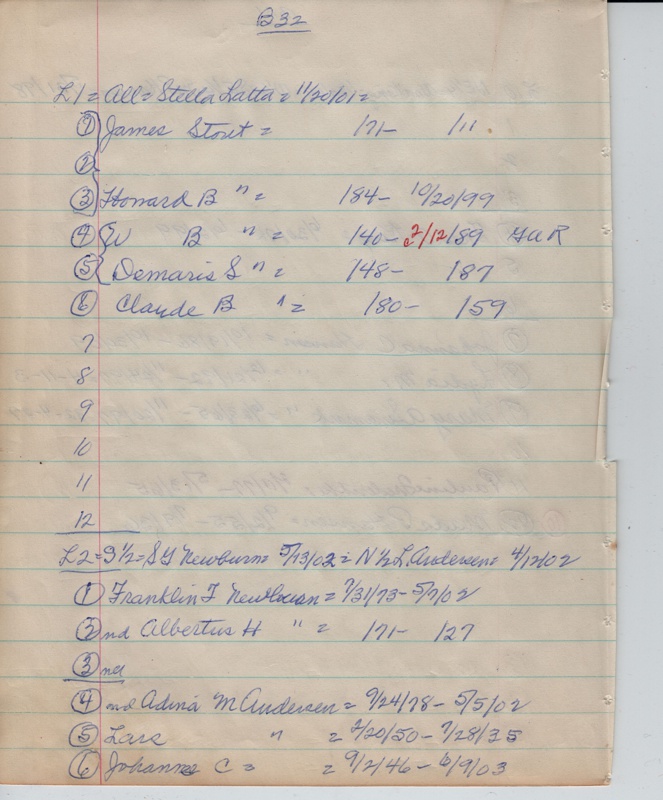 B32
L1 = All = Stella Latta = 11/20/01 =
① James Stout = 171- 111
②
③ Howard B " = 184- 10/20/99
④ W B " = 140- 2/12/89 GAR
⑤ Demaris S " = 148- 187
⑥ Claude B " = 180- 159
7
8
9
10
11
12
L2 = S 1/2 = S F Newburn = 5/13/02 = N 1/2 L. Andersen = 4/12/02
① Franklin F = 7/31/73 - 5/7/02
② nd Albertus H " = 171- 127
③ nd
④ nd Adina M Andersen = 9/24/78 - 5/5/02
⑤ Lars " = 2/20/50 - 7/28/35
⑥ Johanna C = = 9/2/46 - 6/9/03